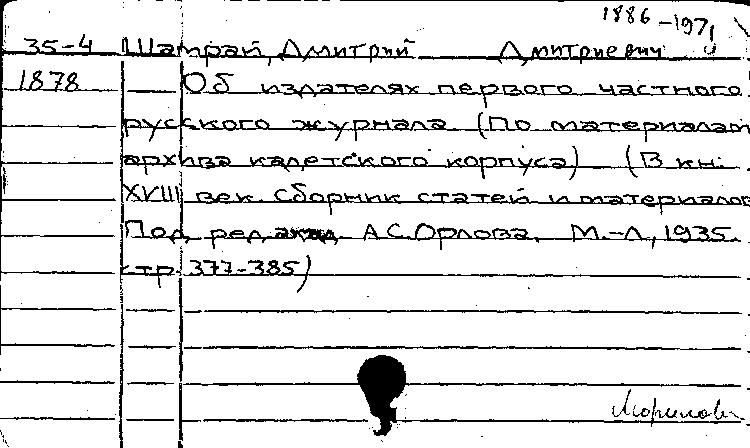 1886-1971
35-4 Шамрай, Дмитрий Дмитриевич
1878 Об издателях первого частного
русского журнала. (По материалам
архива кадетского корпуса) (В кн:
XVIII век. Сборник статей и материалов
Под ред. акад. А.С.Орлова. М.-Л, 1935.
стр. 377-385)